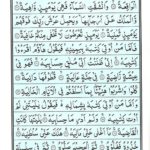 الْوَاقِعَةُ ۝ وَانْشَقَّتِ السَّمَاءُ فَهِيَ يَوْمَئِذٍ وَاهِيَةٌ ۝
وَالْمَلَكُ عَلَى أَرْجَائِهَا وَيَحْمِلُ عَرْشَ رَبِّكَ فَوْقَهُمْ يَوْمَئِذٍ
ثَمَانِيَةٌ ۝ يَوْمَئِذٍ تُعْرَضُونَ لَا تَخْفَى مِنْكُمْ خَافِيَةٌ ۝
فَأَمَّا مَنْ أُوتِيَ كِتَابَهُ بِيَمِينِهِ فَيَقُولُ هَاؤُمُ اقْرَءُوا
كِتَابِيَهْ ۝ إِنِّي ظَنَنْتُ أَنِّي مُلَاقٍ حِسَابِيَهْ ۝ فَهُوَ فِي
عِيشَةٍ رَاضِيَةٍ ۝ فِي جَنَّةٍ عَالِيَةٍ ۝ قُطُوفُهَا دَانِيَةٌ ۝
كُلُوا وَاشْرَبُوا هَنِيئًا بِمَا أَسْلَفْتُمْ فِي الْأَيَّامِ الْخَالِيَةِ ۝
وَأَمَّا مَنْ أُوتِيَ كِتَابَهُ بِشِمَالِهِ فَيَقُولُ يَا لَيْتَنِي لَمْ
أُوتَ كِتَابِيَهْ ۝ وَلَمْ أَدْرِ مَا حِسَابِيَهْ ۝ يَا لَيْتَهَا كَانَتِ
الْقَاضِيَةَ ۝ مَا أَغْنَى عَنِّي مَالِيَهْ ۝